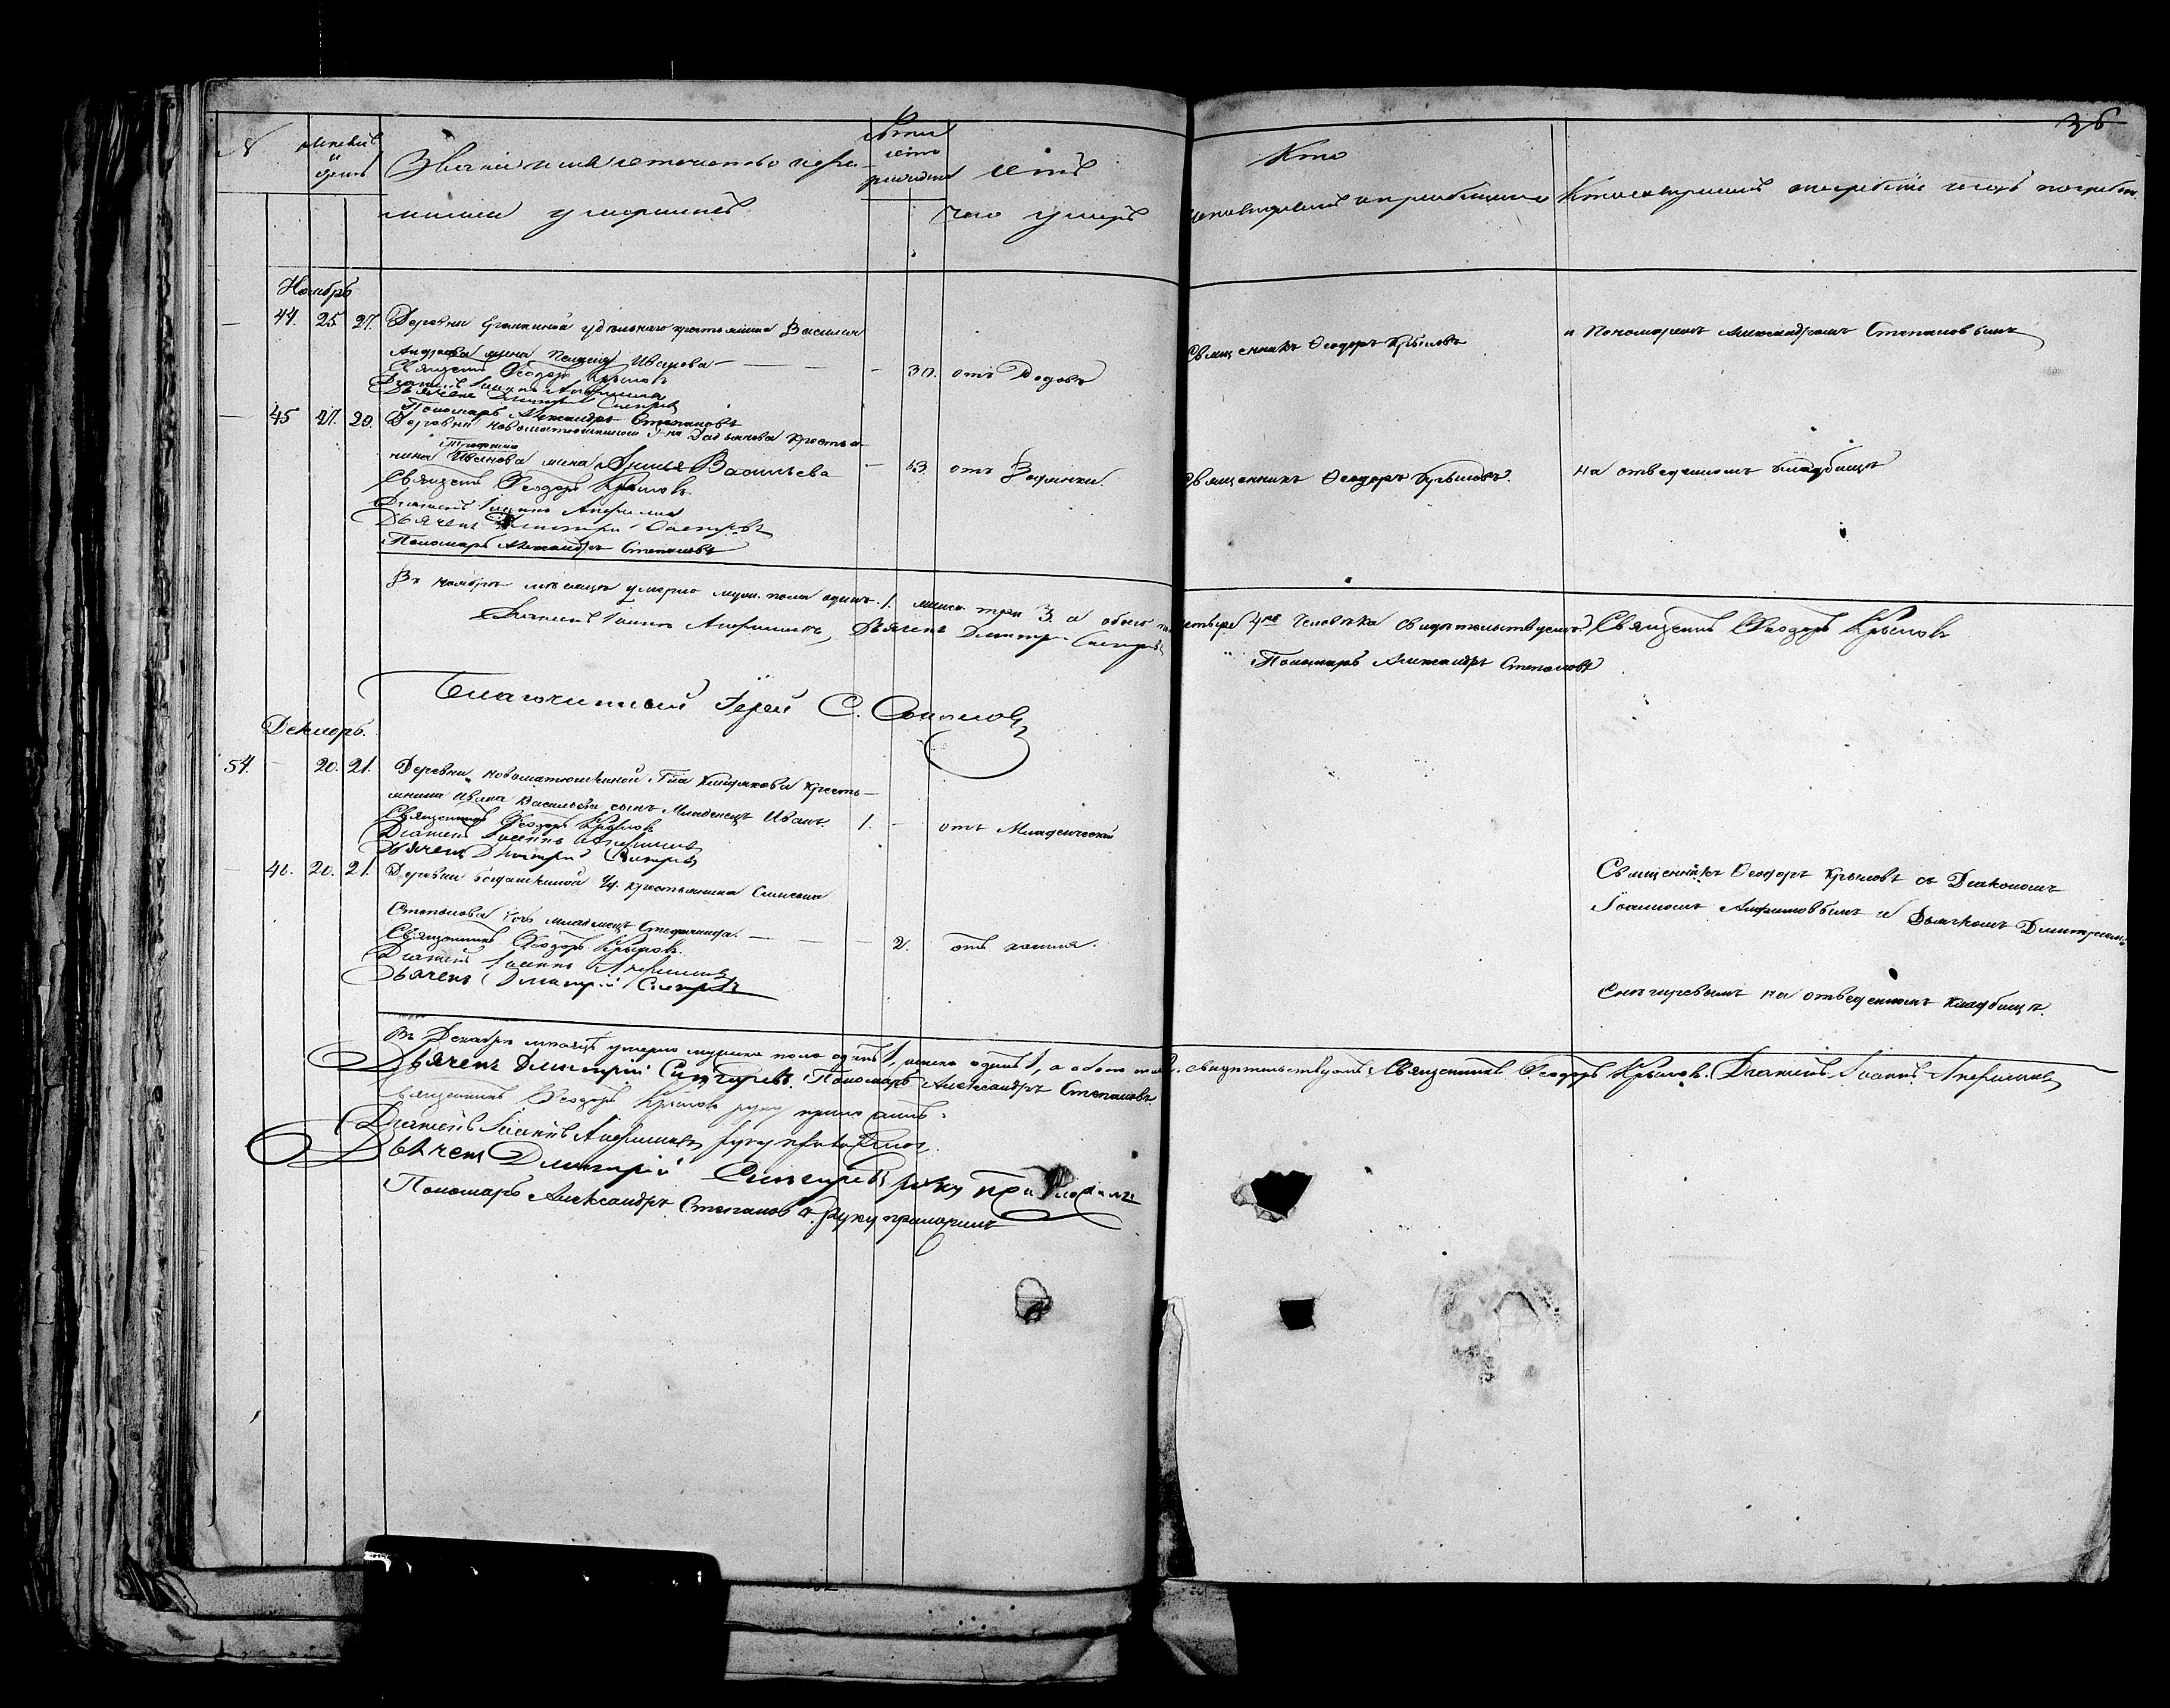 36
Месяцъ и день
Званіе имя и отечество и фа-
миліи умершихъ
лѣта
отъ
чего умеръ
Кто
исповѣдывалъ и пріобщалъ
Кто совершалъ погребеніе и гдѣ погребены
Ноябрь
44. 25 27. Деревни удѣльнаго крестьянина Василія
Андреева жена Иванова — 30. отъ Родовъ
Священникъ Ѳеодоръ Крыловъ
и Пономаремъ Александромъ Степановымъ
Священникъ Ѳеодоръ Крыловъ
Діаконъ Іоаннъ
Дьячекъ Дмитрій
Пономарь Александръ Степановъ
45 27. 29. Деревни Новоматюшкиной Г-на крестья-
Трофима
нина Иванова жена Васильева — 43 отъ
Священникъ Ѳеодоръ Крыловъ.
на отведенномъ кладбищѣ
Священникъ Ѳеодоръ Крыловъ.
Діаконъ Іоаннъ
Дьячекъ Дмитрій
Пономарь Александръ Степановъ
Въ ноябрѣ мѣсяцѣ умерло муж. пола одинъ. 1. женск. три 3. а обоего четыре 4ре человѣка свидѣтельствуемъ: Священникъ Ѳеодоръ Крыловъ
Діаконъ Іоаннъ Дьячекъ Дмитрій
Пономарь Александръ Степановъ
Благочинный Іерей С.
Декабрь.
54. — 20. 21. Деревни Новоматюшкиной Г-на кресть-
янина Ивана Васильева сынъ Младенецъ Иванъ. 1. — отъ Младенческой
Священникъ Ѳеодоръ Крыловъ
Діаконъ Іоаннъ
Дьячекъ Дмитрій
— 46. 20. 21. Деревни Уд. крестьянина Симеона
Степанова дочь младенецъ — 2. отъ кашля.
Священникъ Ѳеодоръ Крыловъ съ Діакономъ
Іоанномъ и Дьячкомъ Дмитріемъ
Снѣгиревымъ на отведенномъ кладбищѣ.
Священникъ Ѳеодоръ Крыловъ.
Діаконъ Іоаннъ
Дьячекъ Дмитрій
Въ Декабрѣ мѣсяцѣ умерло мужска пола одинъ 1, женска одинъ 1, а обоего пола 2. свидѣтельствуютъ: Священникъ Ѳеодоръ Крыловъ. Діаконъ Іоаннъ
Дьячекъ Дмитрій Снѣгиревъ. Пономарь Александръ Степановъ
Священникъ Ѳеодоръ Крыловъ руку приложилъ.
Діаконъ Іоаннъ руку приложилъ
Дьячекъ Дмитрій Снѣгиревъ руку приложилъ
Пономарь Александръ Степановъ руку приложилъ